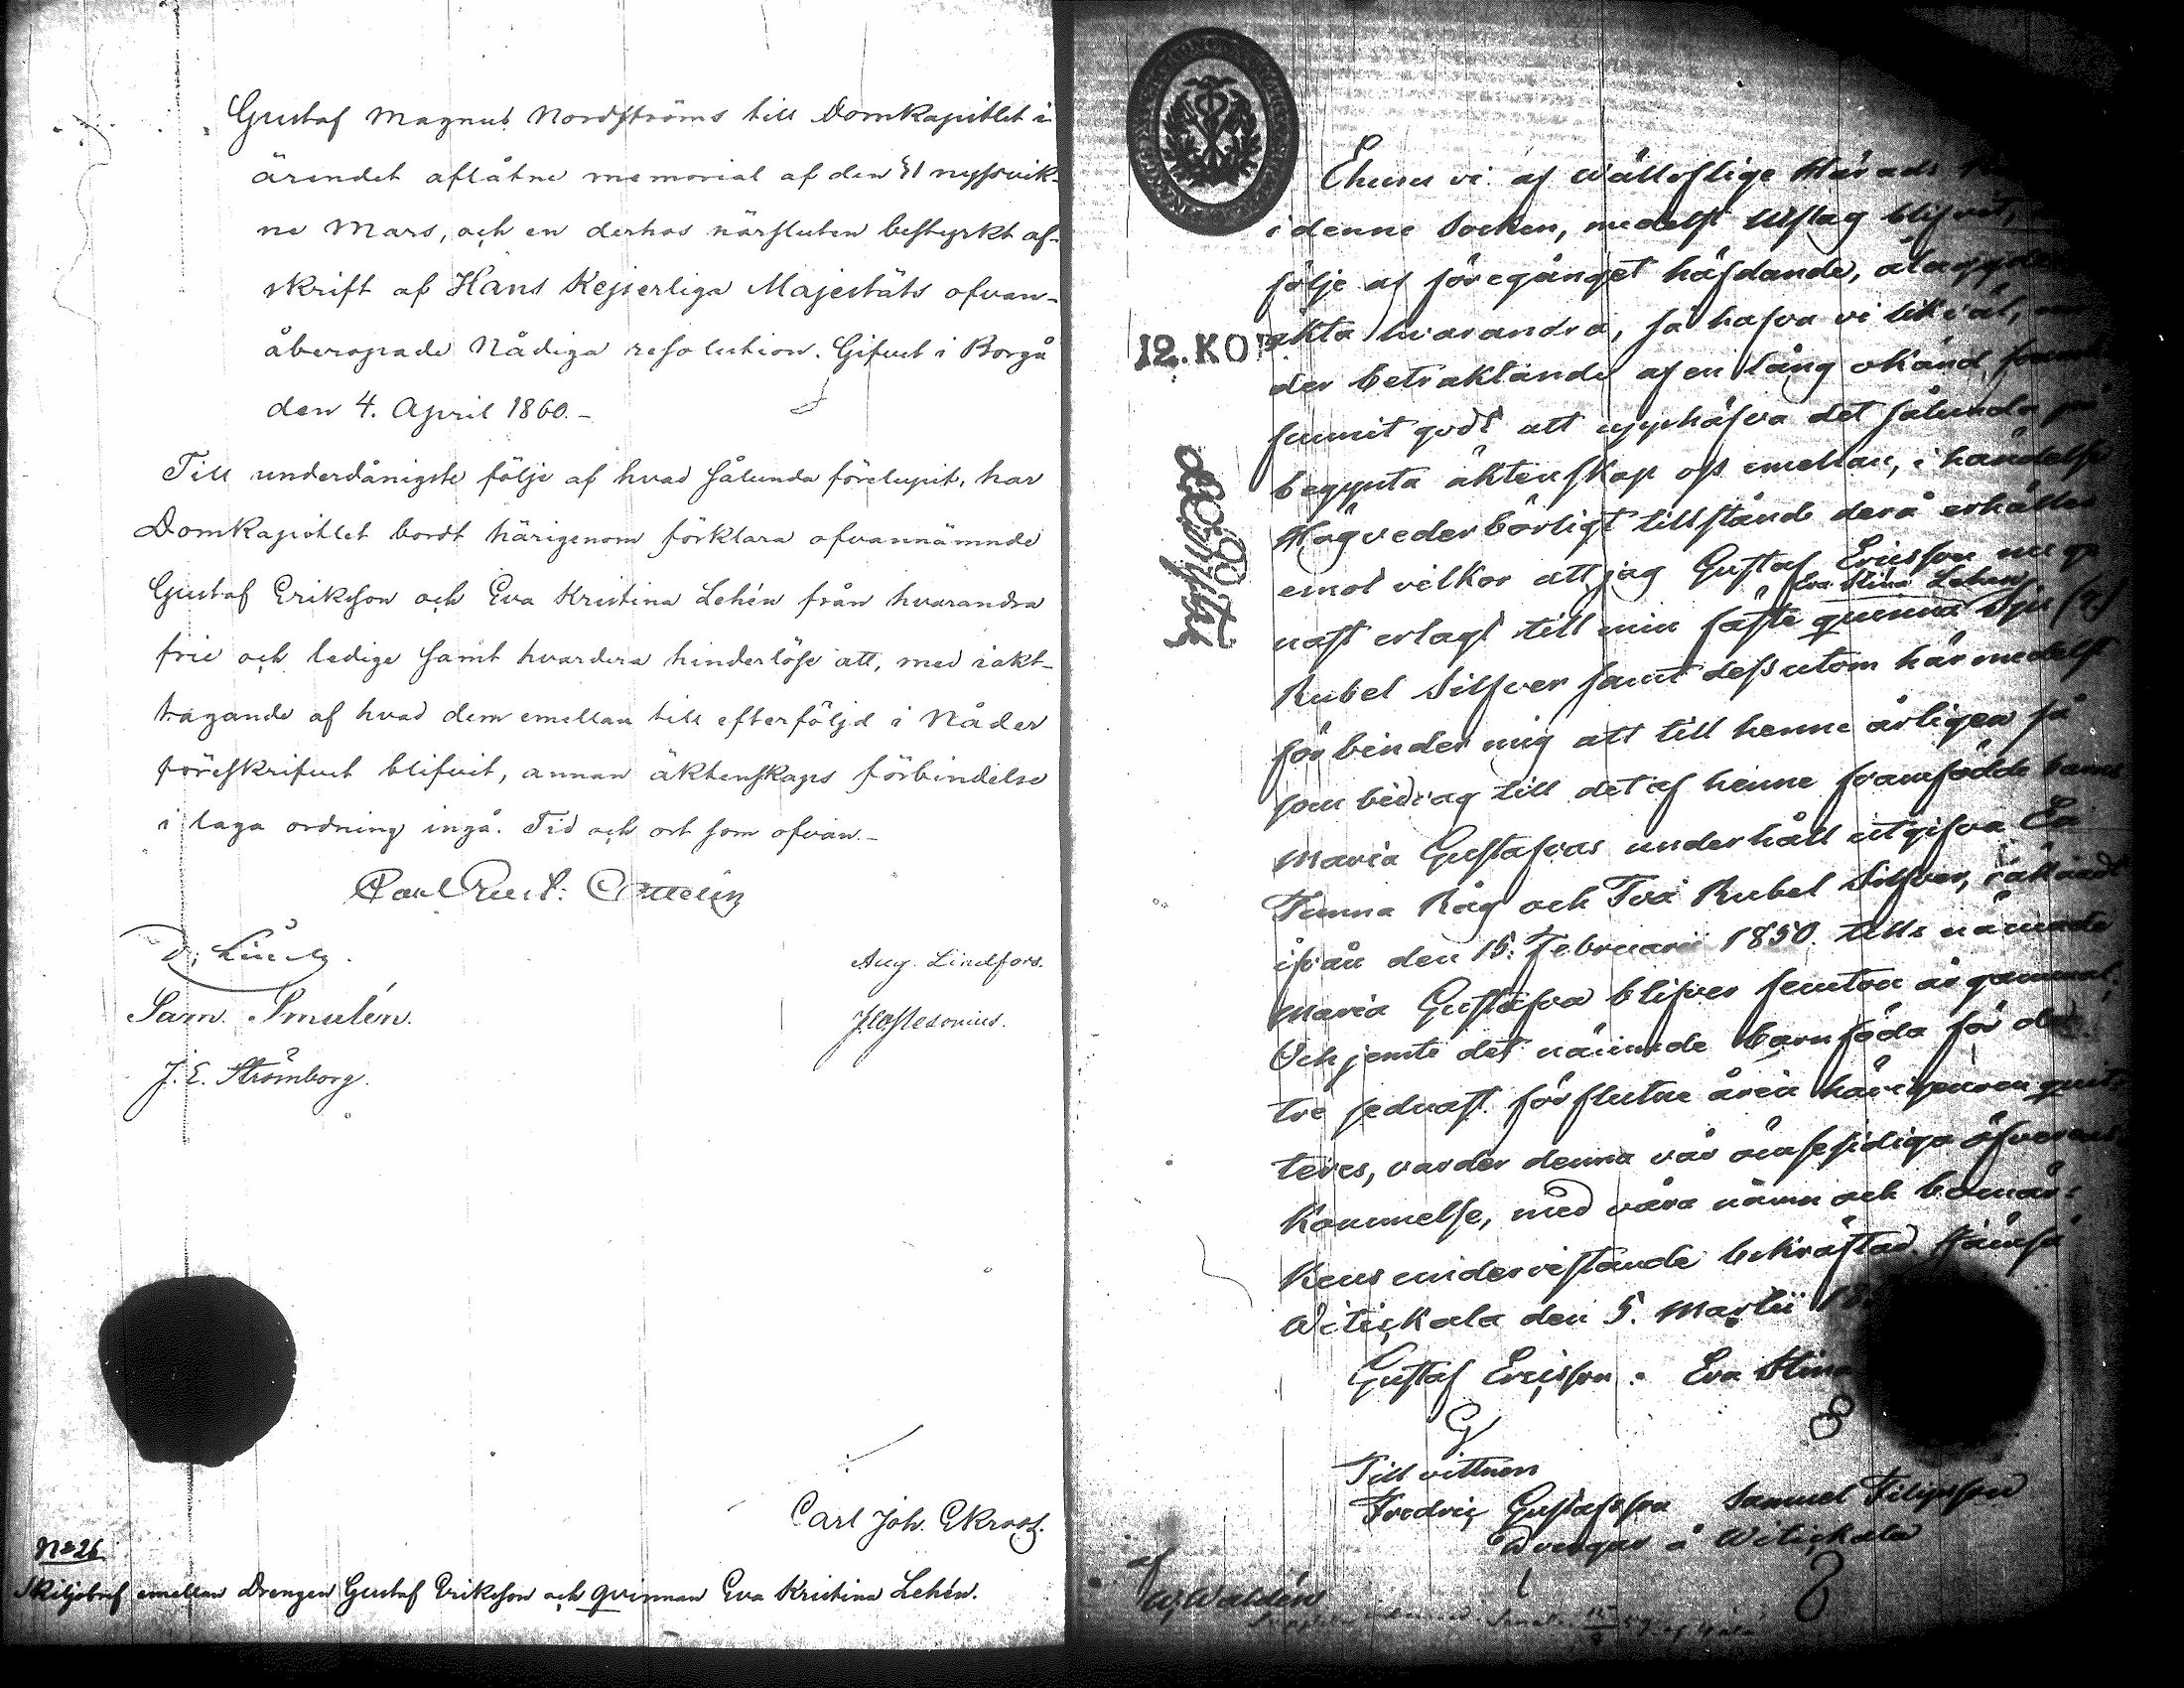 Gustaf Magnus Nordströms till Domkapitlet i
ärendet aflåtne memorial af den 31 nyssvik-
ne Mars, och en derhos närsluten bestyrkt af-
skrift af Hans Kejserliga Majestäts ofvan-
åberopade Nådiga resolution. Gifvet i Borgå
den 4. April 1860.-
Till underdånigste följe af hvad sålunda förelupit, har
Domkapitlet bordt härigenom förklara ofvannämnde
Gustaf Eriksson och Eva Kristina Lehén från hvarandra
frie och ledige samt hvardera hinderlöse att, med iakt-
tagande af hvad dem emellan till efterföljd i Nåder
föreskrifvet blifvit, annan äktenskaps förbindelse
i laga ordning ingå. Tid och ort som ofvan.-
Aug. Lindfors.
Sam. Smulén.
J. E. Strömborg.
Carl Joh. Ekroos.
No 26.
Skiljobref emellan Drengen Gustaf Eriksson och qvinnan Eva Kristina Lehén.
Ehuru vi af Wälloflige Härads
i denne Socken, medelst Utslag blifvit,
följe af föregånget häfdande,
äkta hvarandra, så hafva vi likväl,
der betraktande af en lång okänd
funnit godt att upphäfva det sålunda på
begynta äktenskap oss emellan, i händelse
Högvederbörligt tillstånd derå erhålles
emot vilkor att jag Gustaf Ericsson
Eva Stina Lehen
nast erlagt till min fäste quinna Sju (7.)
Rubel Silfver samt dessutom härmedelst
förbinder mig att till henne årligen så
som bidrag till det af henne framfödde barns
Maria Gustafvas underhåll utgifva En
Tunna Råg och Två Rubel Silfver, räknadt
ifrån den 15. Februarii 1850. tills nämnde
Maria Gustafva blifver femton år gammal;
Och jemte det nämnde barnföda för de
tre sednast förflutne åren härigenom quit-
teres, varder denna vår ömsesidiga öfverens
kommelse, med våra namn och bomär-
kens undervistande bekräftad.
Witickala den 5. Martii
Gustaf Ericsson. Eva Stina
Till vittnen
Fredric Gustafsson Samuel Filipsson
Drengar å Witickala
12. KOP
af
W. Waldén